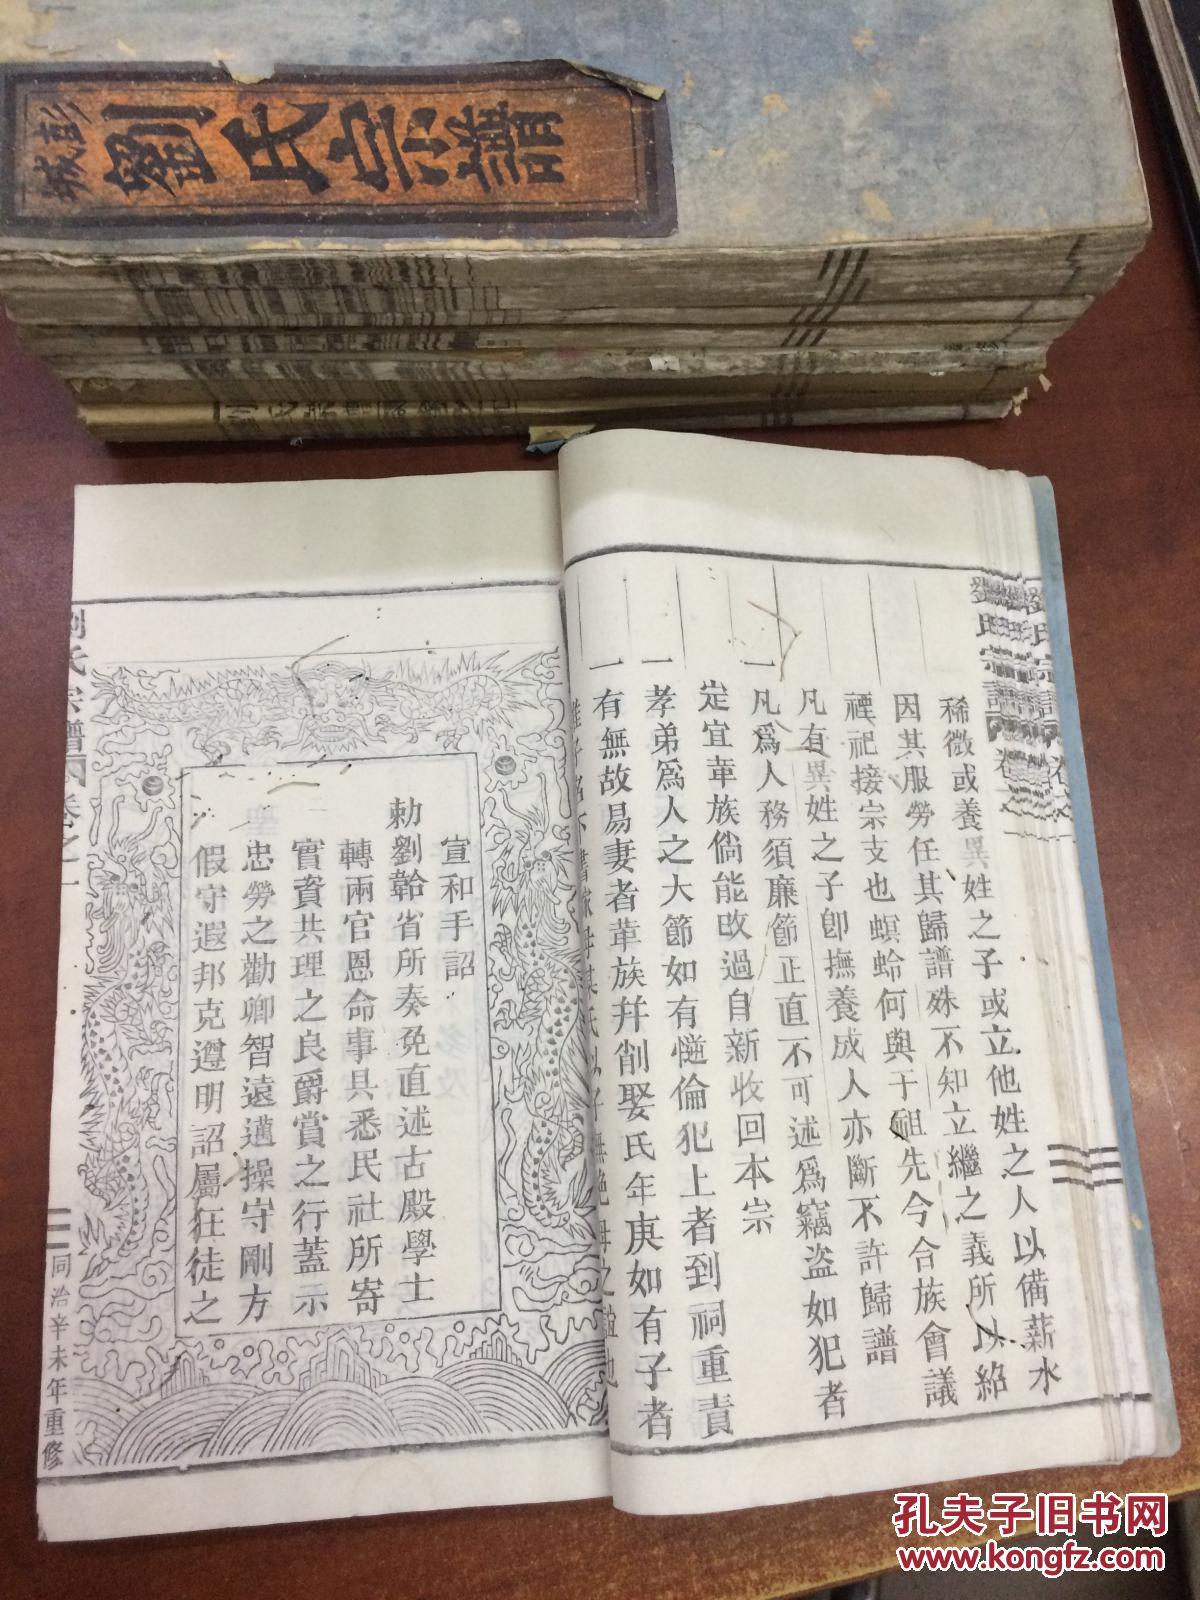 彭城
劉氏宗譜
劉氏宗譜
卷之
稀微或養異姓之子或立他姓之人以備薪水
因其服勞任其歸譜殊不知立繼之義所以紹
禋祀接宗支也螟蛉何與于祖先今合族會議
凡有異姓之子卽撫養成人亦斷不許歸譜
一凡爲人務須廉節正直不可述爲竊盜如犯者
定宜革族倘能攺過自新收回本宗
一孝弟爲人之大節如有慥倫犯上者到祠重責
一有無故易妻者革族幷削娶氏年庚如有子者
宣和手詔
勅劉韐省所奏免直述古殿學士
轉兩官恩命事具悉民社所寄
實資共理之良爵賞之行蓋示
忠勞之勸卿智遠邁操守剛方
假守遐邦克遵明詔屬狂徒之
劉氏宗譜
卷之一
同治辛未年重修
孔夫子旧书网
www.kongfz.com